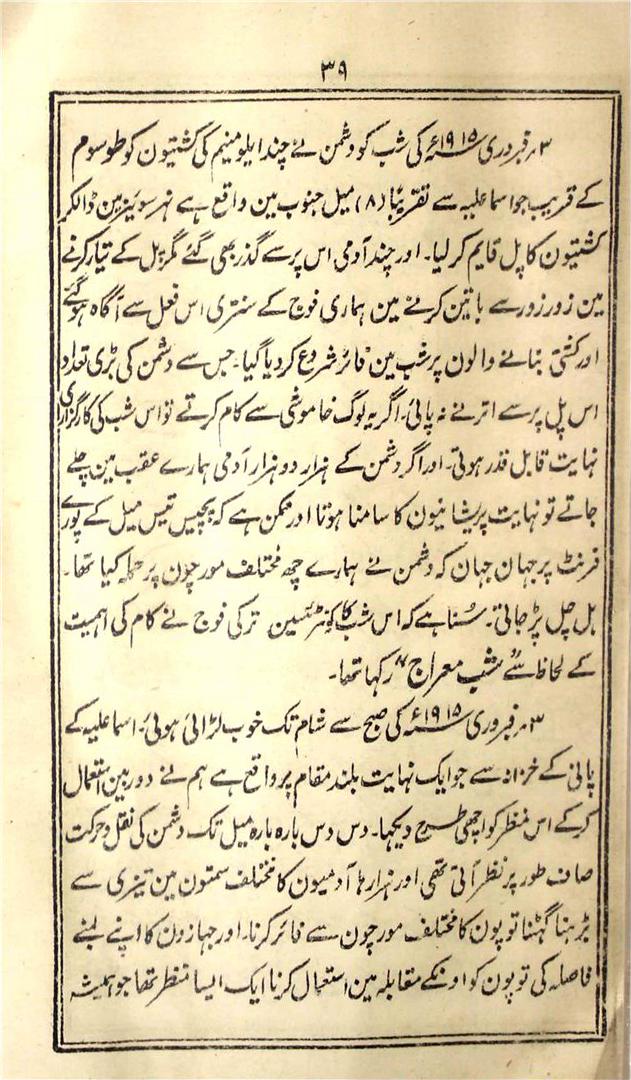 ۳۹
۳؍ فبروری ۱۹۱۵؁ء کی شب کو دشمن نے چند ایلومنیم کی کشتیون کو طوسوم
کے قریب جو اسماعلیہ سے تقریباً (۸) میل جنوب مین واقع ہے نہر سویز مین ڈالکر
کشتیون کا پل قایم کر لیا۔ اور چند آدمی اس پر سے گذر بھی گئے مگر پل کے تیار کرنے
مین زور زور سے باتین کرنے مین ہماری فوج کے سنتری اس فعل سے آگاہ ہو گئے
اور کشتی بنانے والون پر شب مین فائر شروع کر دیا گیا۔ جس سے دشمن کی بڑی تعداد
اس پل پر سے اترنے نہ پائی۔ اگر یہ لوگ خاموشی سے کام کرتے تو اس شب کی کارگزاری
نہایت قابل قدر ہوتی۔ اور اگر دشمن کے ہزار دو ہزار آدمی ہمارے عقب مین چلے
جاتے تو نہایت پریشانیون کا سامنا ہوتا اور ممکن ہے کہ پچیس تیس میل کے پورے
فرنٹ پر جہان جہان کہ دشمن نے ہمارے چھ مختلف مورچون پر حملہ کیا تھا۔
ہل چل پڑ جاتی۔ سُنا ہے کہ اس شب کا کونٹرسین ترکی فوج نے کام کی اہمیت
کے لحاظ سے "شب معراج" رکھا تھا۔
۳؍ فبروری ۱۹۱۵؁ء کی صبح سے شام تک خوب لڑائی ہوئی۔ اسماعلیہ کے
پانی کے خزانہ سے جو ایک نہایت بلند مقام پر واقع ہے ہم نے دوربین استعمال
کر کے اس منظر کو اچھی طرح دیکھا۔ دس دس بارہ بارہ میل تک دشمن کی نقل و حرکت
صاف طور پر نظر آتی تھی اور ہزارہا آدمیون کا مختلف سمتون مین تیزی سے
بڑہنا گہٹنا توپون کا مختلف مورچون سے فائر کرنا۔ اور جہازون کا اپنے لمبے
فاصلہ کی توپون کو اونکے مقابلہ مین استعمال کرنا ایک ایسا منظر تھا جو ہمیشہ